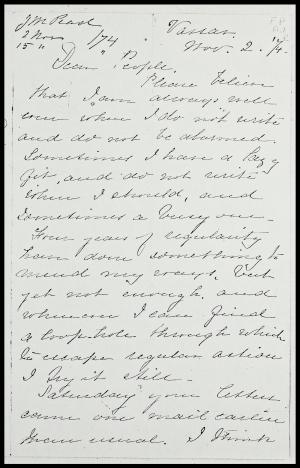 J M Pease
2 Nov
15 " /74
Vassar,
Nov. 2. /74.
Dear People,
Please believe
that I am always well
even when I do not write
and do not be alarmed.
Sometimes I have a lazy
fit, and do not write
when I should, and
sometimes a busy one—
Four years of regularity
have done something to
mend my ways, but
yet not enough, and
whenever I can find
a loop-hole through which
to escape regular action
I try it still—
Saturday your letter
came one mail earlier
than usual. I think